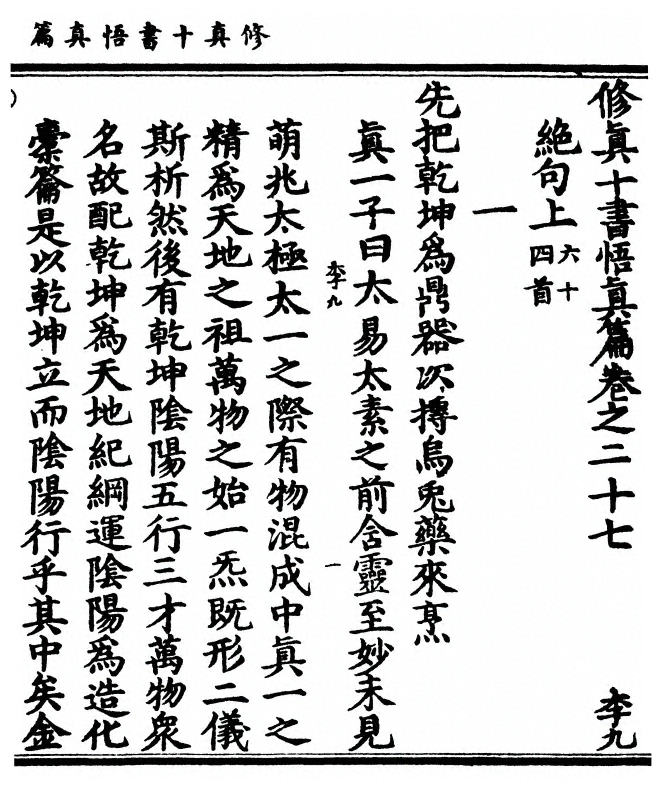 修真十書悟真篇
修眞十書悟眞篇卷之二十七
李九
絶句上
六十
四首
一
先把乾坤為鼎器次摶烏兎藥來烹
眞一子曰太易太素之前含靈至妙未見
李九
一
萌兆太極太一之際有物混成中眞一之
精爲天地之祖萬物之始一炁既形二儀
斯析然後有乾坤陰陽五行三才萬物衆
名故配乾坤爲天地紀綱運陰陽爲造化
槖籥是以乾坤立而陰陽行乎其中矣金